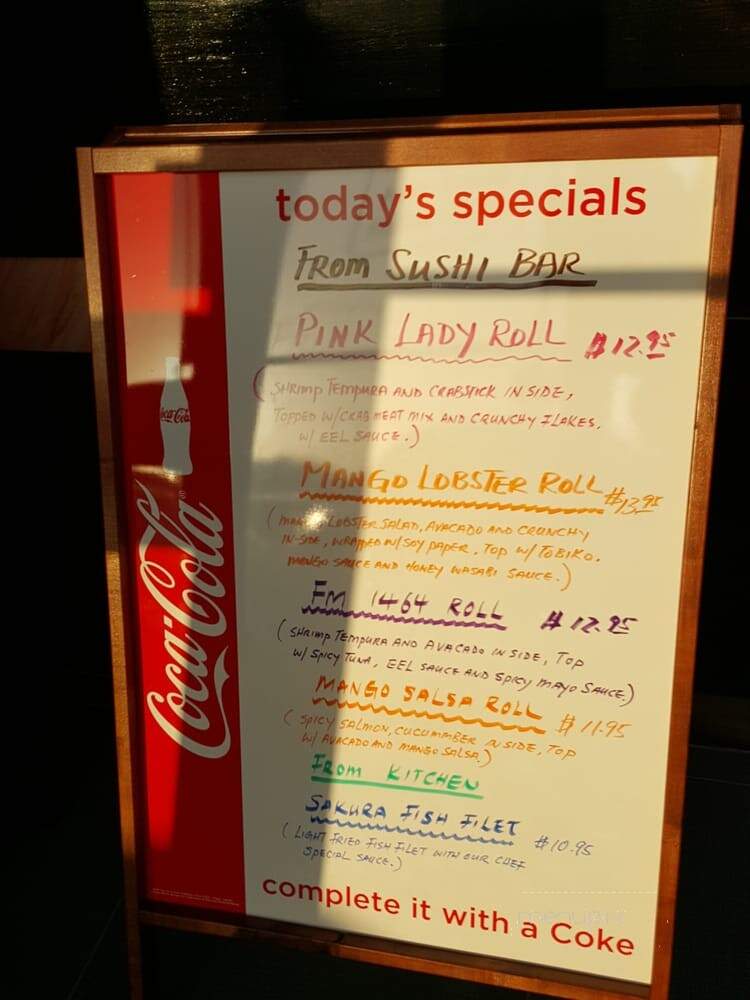 today's specials
FROM SUSHI BAR
PINK LADY ROLL $12.95
(SHRIMP TEMPURA AND CRABSTICK IN SIDE,
TOPPED W/CRAB MEAT MIX AND CRUNCHY FLAKES.
W/ EEL SAUCE.)
MANGO LOBSTER ROLL $13.95
(MANGO, LOBSTER SALAD, AVACADO AND CRUNCHY
IN-SIDE, WRAPPED W/SOY PAPER. TOP W/ TOBIKO.
MANGO SAUCE AND HONEY WASABI SAUCE.)
FM 1464 ROLL $12.95
(SHRIMP TEMPURA AND AVACADO IN SIDE, TOP
W/ SPICY TUNA, EEL SAUCE AND SPICY MAYO SAUCE.)
MANGO SALSA ROLL $11.95
(SPICY SALMON, CUCUMMBER IN SIDE, TOP
W/ AVACADO AND MANGO SALSA.)
FROM KITCHEN
SAKURA FISH FILET $10.95
(LIGHT FRIED FISH FILET WITH OUR CHEF
SPECIAL SAUCE.)
complete it with a Coke
Coca-Cola
Coca-Cola®